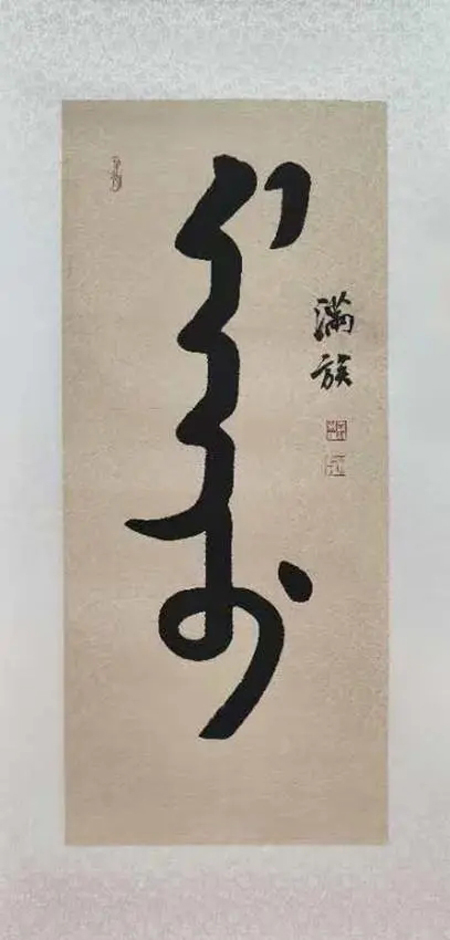 ᠮᠠᠨᠵᡠ
滿族